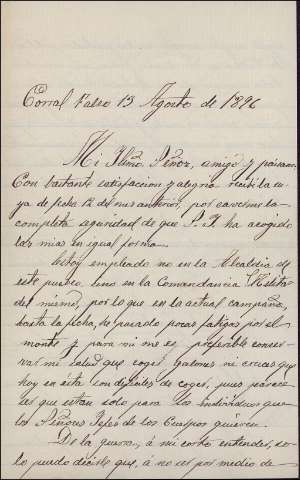 Corral Falso 13 Agosto de 1896
Mi Iltmo Señor, amigo y paisano
Con bastante satisfaccion y alegria recibi la su
ya de fecha 12 del mes anterior, por
completa seguridad de que S. I. ha acogido
las mias en igual forma.
Estoy empleado no en la Alcaldia de
este pueblo, sino en la Comandancia Militar
del mismo, por lo que en la actual campaña,
hasta la fecha, he pasado pocas fatigas por el
monte y para mi me es preferible conser-
var mi salud que coger galones ni cruces que
hoy en esta son dificiles de coger, pues parece
es que estan solo para los individuos que
los Señores Jefes de los Cuerpos quieren.
De la guerra, á mi corto entender, so-
lo puedo decirle que, á no ser por medio de